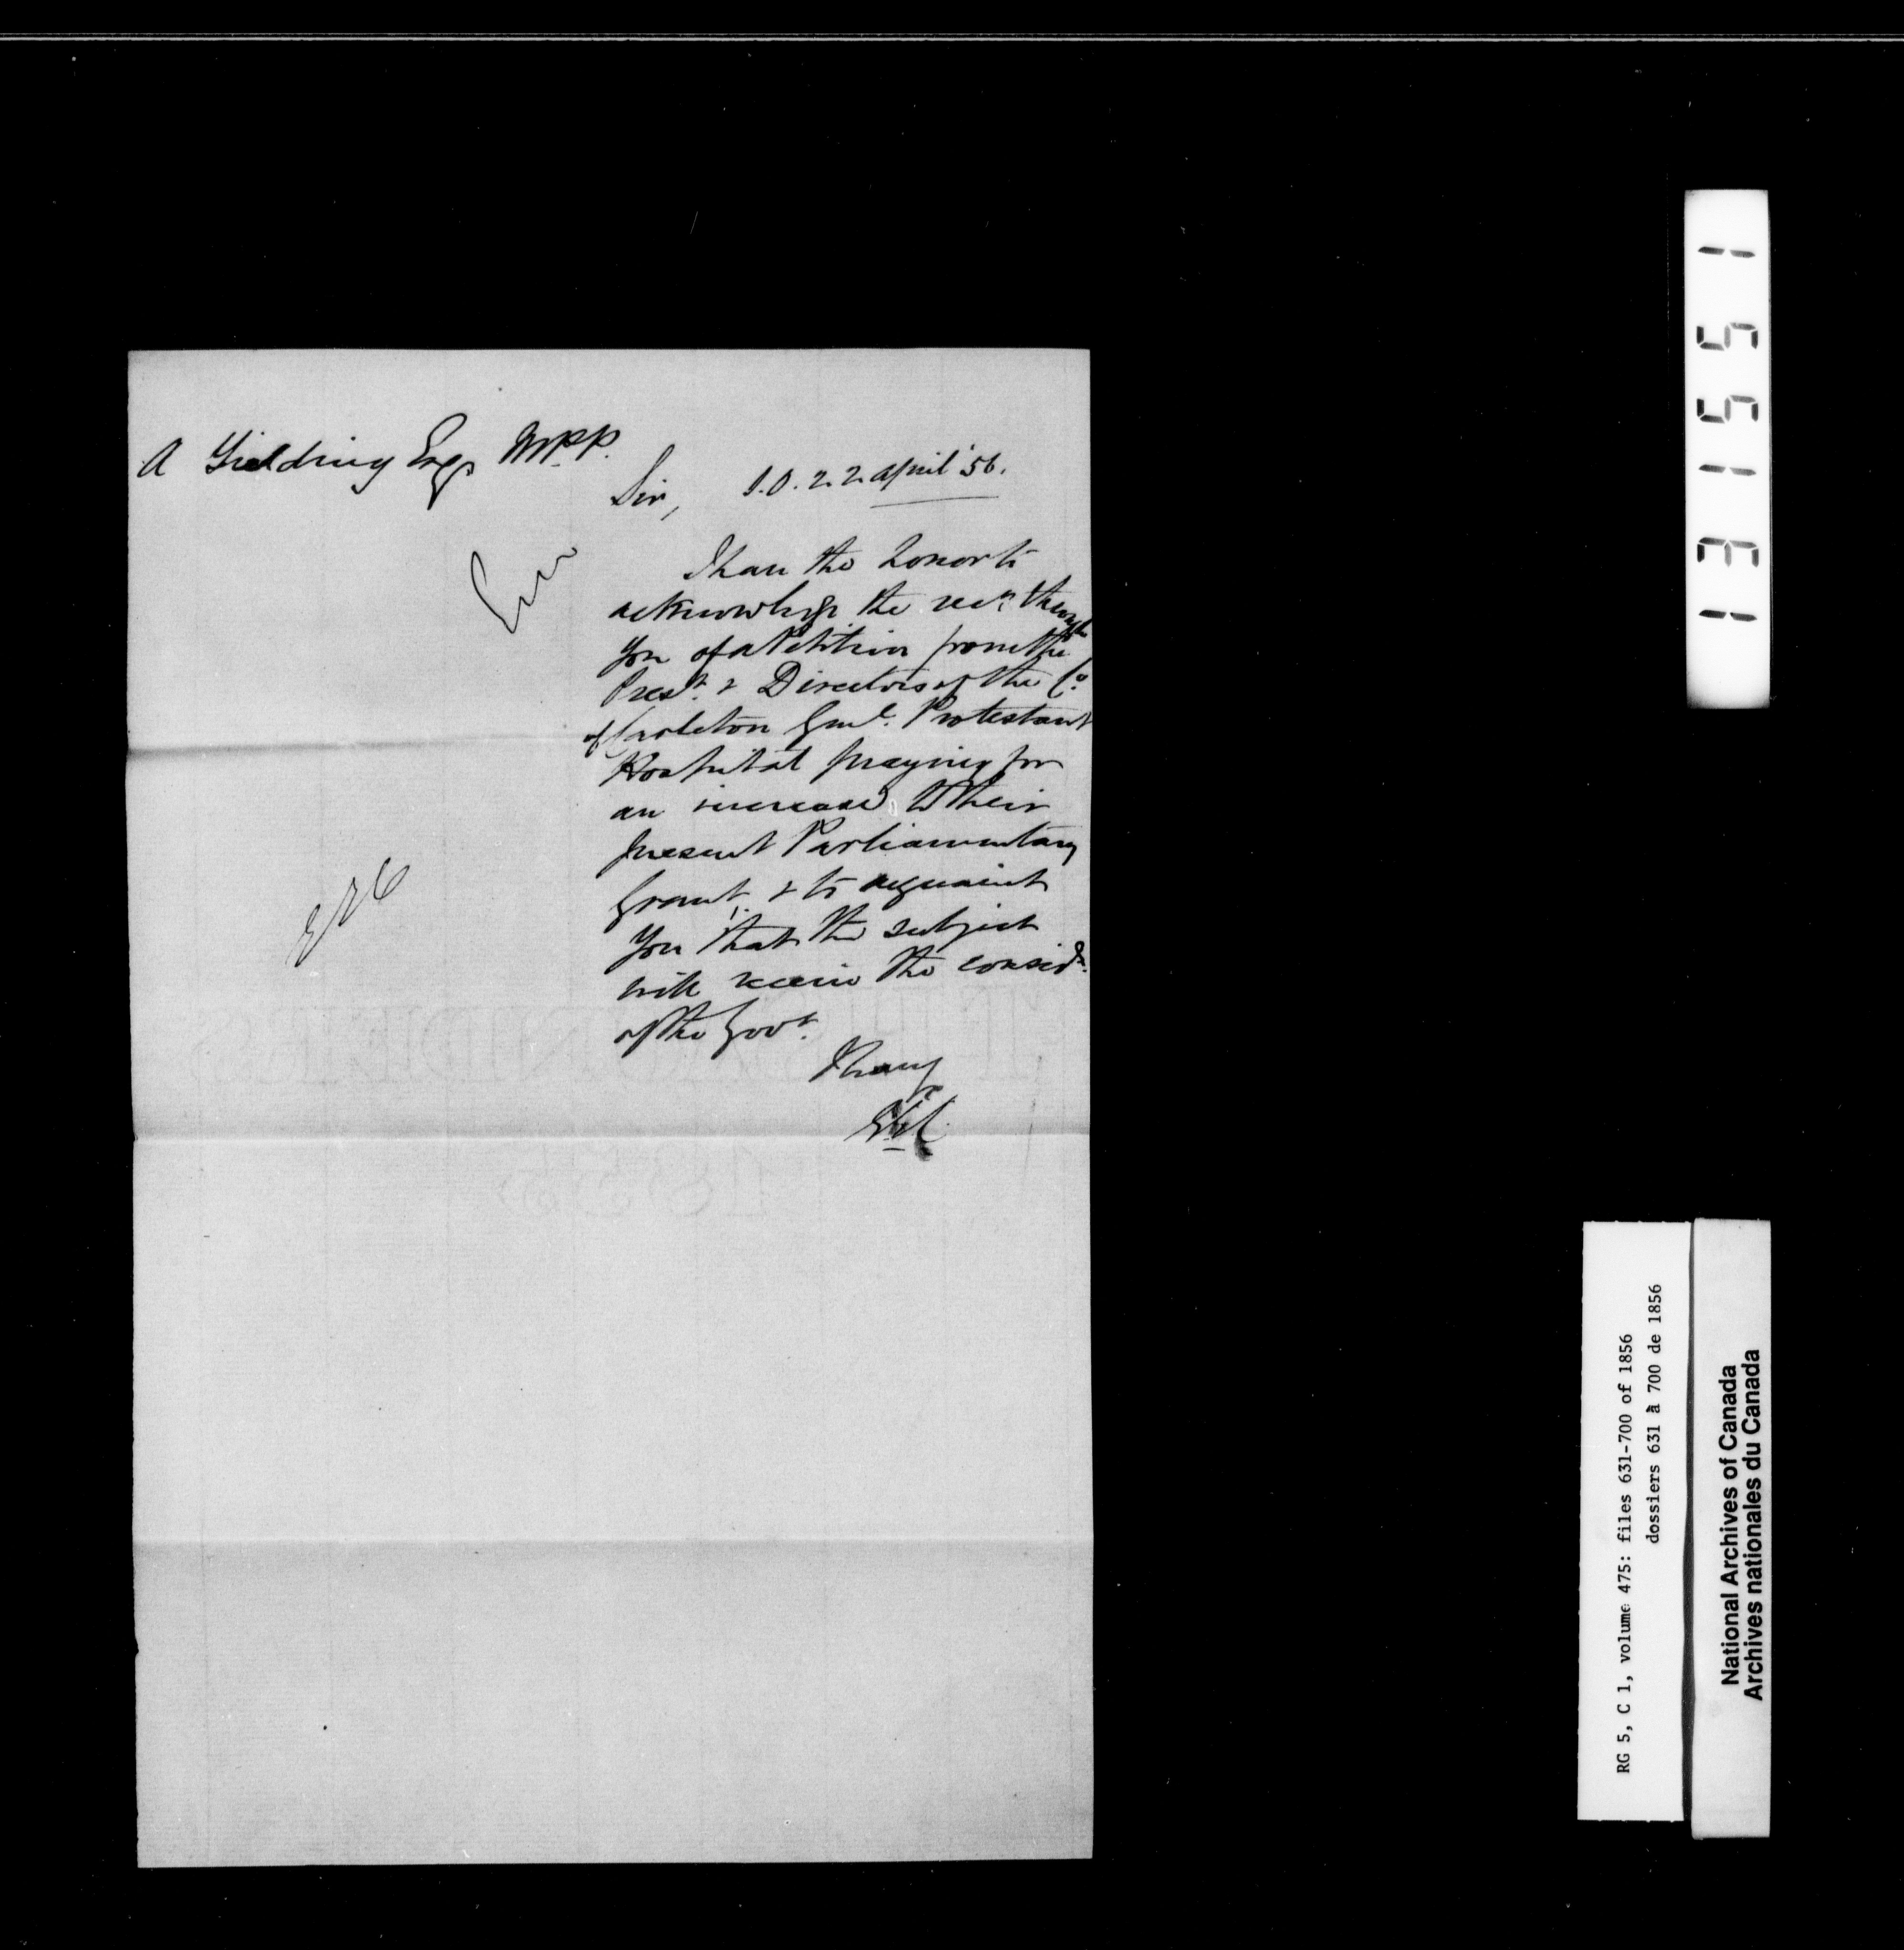 A Yielding Esqr M.P.P.
S.O. 22 April '56.
Sir,
I have the honor to
acknowledge the recpt. through
you of a Petition from the
Presdt. & Directors of the Co.
of Carleton Genl. Protestant
Hospital praying for
an increase to their
present Parliamentary
Grant, & to acquaint
you that the subject
will receive the considn.
of the Govt.
I have
&c
131551
RG 5, C 1, volume 475: files 631-700 of 1856
dossiers 631 à 700 de 1856
National Archives of Canada
Archives nationales du Canada